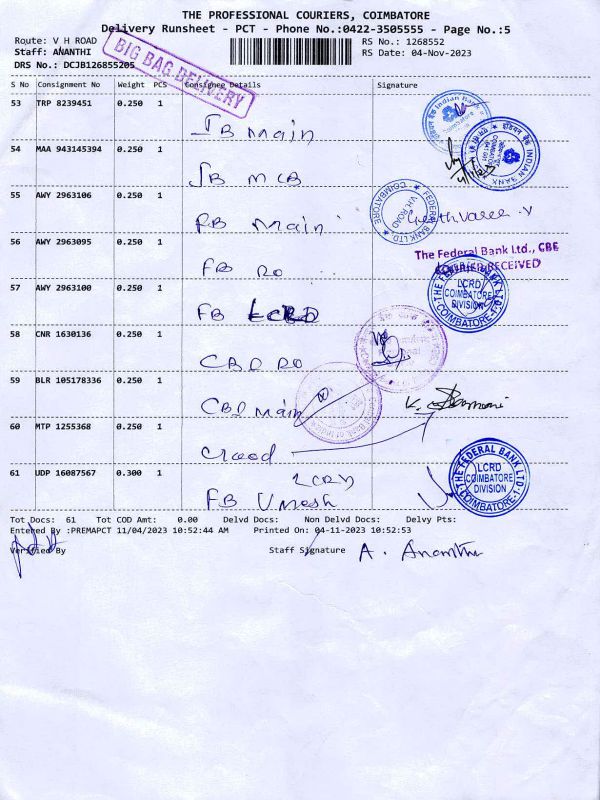 THE PROFESSIONAL COURIERS, COIMBATORE
Delivery Runsheet - PCT - Phone No.:0422-3505555 - Page No.:5
Route: V H ROAD
RS No.: 1268552
Staff: ANANTHI
RS Date: 04-Nov-2023
DRS No.: DCJB126855205
BIG BAG DELIVERY
S No Consignment No Weight PCS Consignee Details Signature
53 TRP 8239451 0.250 1
IB Main
Indian Bank
Coimbatore
54 MAA 943145394 0.250 1
IB MCB
INDIAN BANK
55 AWY 2963106 0.250 1
FB Main
FEDERAL BANK LTD.
V.H. ROAD
COIMBATORE
56 AWY 2963095 0.250 1
FB RO
The Federal Bank Ltd., CBE
COURIER RECEIVED
57 AWY 2963100 0.250 1
FB LCRD
THE FEDERAL BANK LTD.
LCRD
COIMBATORE
DIVISION
COIMBATORE-1
58 CNR 1630136 0.250 1
CBI RO
59 BLR 105178336 0.250 1
CBI Main
60 MTP 1255368 0.250 1
61 UDP 16087567 0.300 1
LCRD
FB Umesh
THE FEDERAL BANK LTD.
LCRD
COIMBATORE
DIVISION
COIMBATORE-1
Tot Docs: 61 Tot COD Amt: 0.00 Delvd Docs: Non Delvd Docs: Delvy Pts:
Entered By :PREMAPCT 11/04/2023 10:52:44 AM Printed On: 04-11-2023 10:52:53
Verified By
Staff Signature A. Ananthi